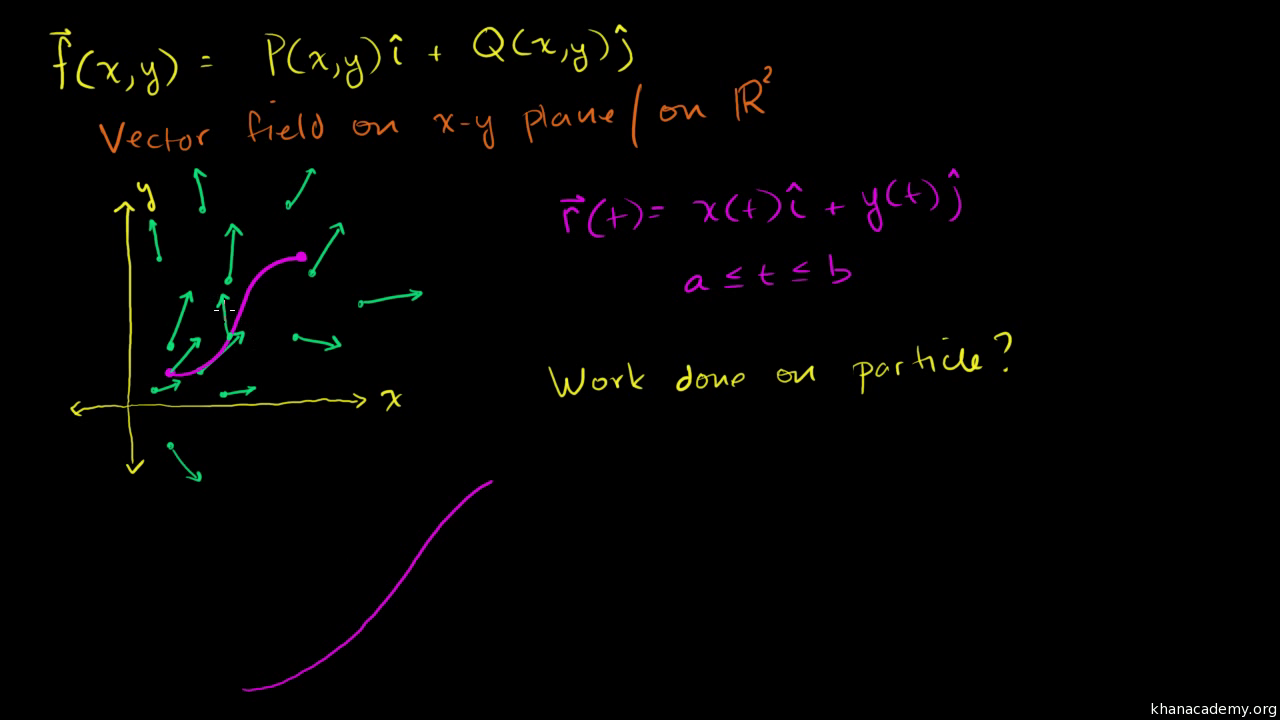 f⃗(x,y) = P(x,y)î + Q(x,y)ĵ
Vector field on x-y plane / on ℝ²
y
r⃗(t) = x(t)î + y(t)ĵ
a ≤ t ≤ b
Work done on particle?
x
khanacademy.org